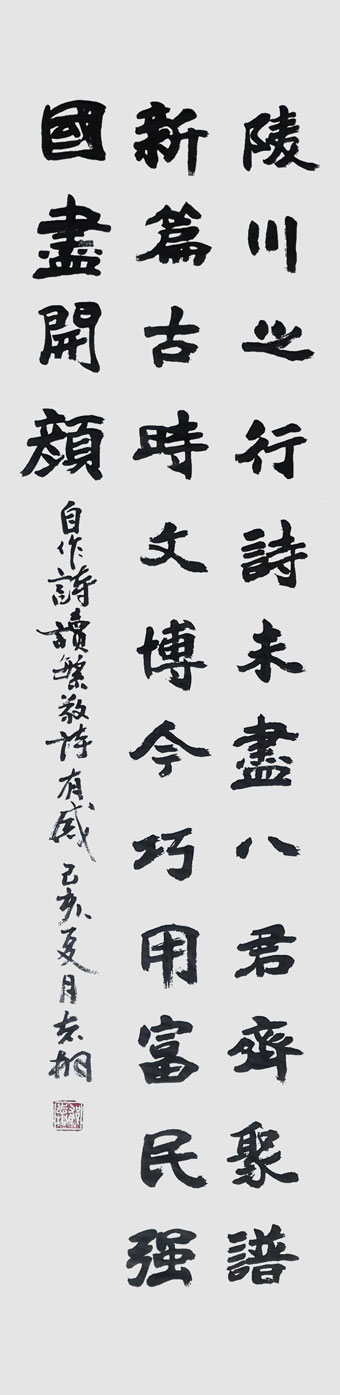 陵川之行詩未盡八君齊聚譜
新篇古時文博今巧用富民强
國盡開顔
自作詩讀繁敎詩有感己亥夏月志